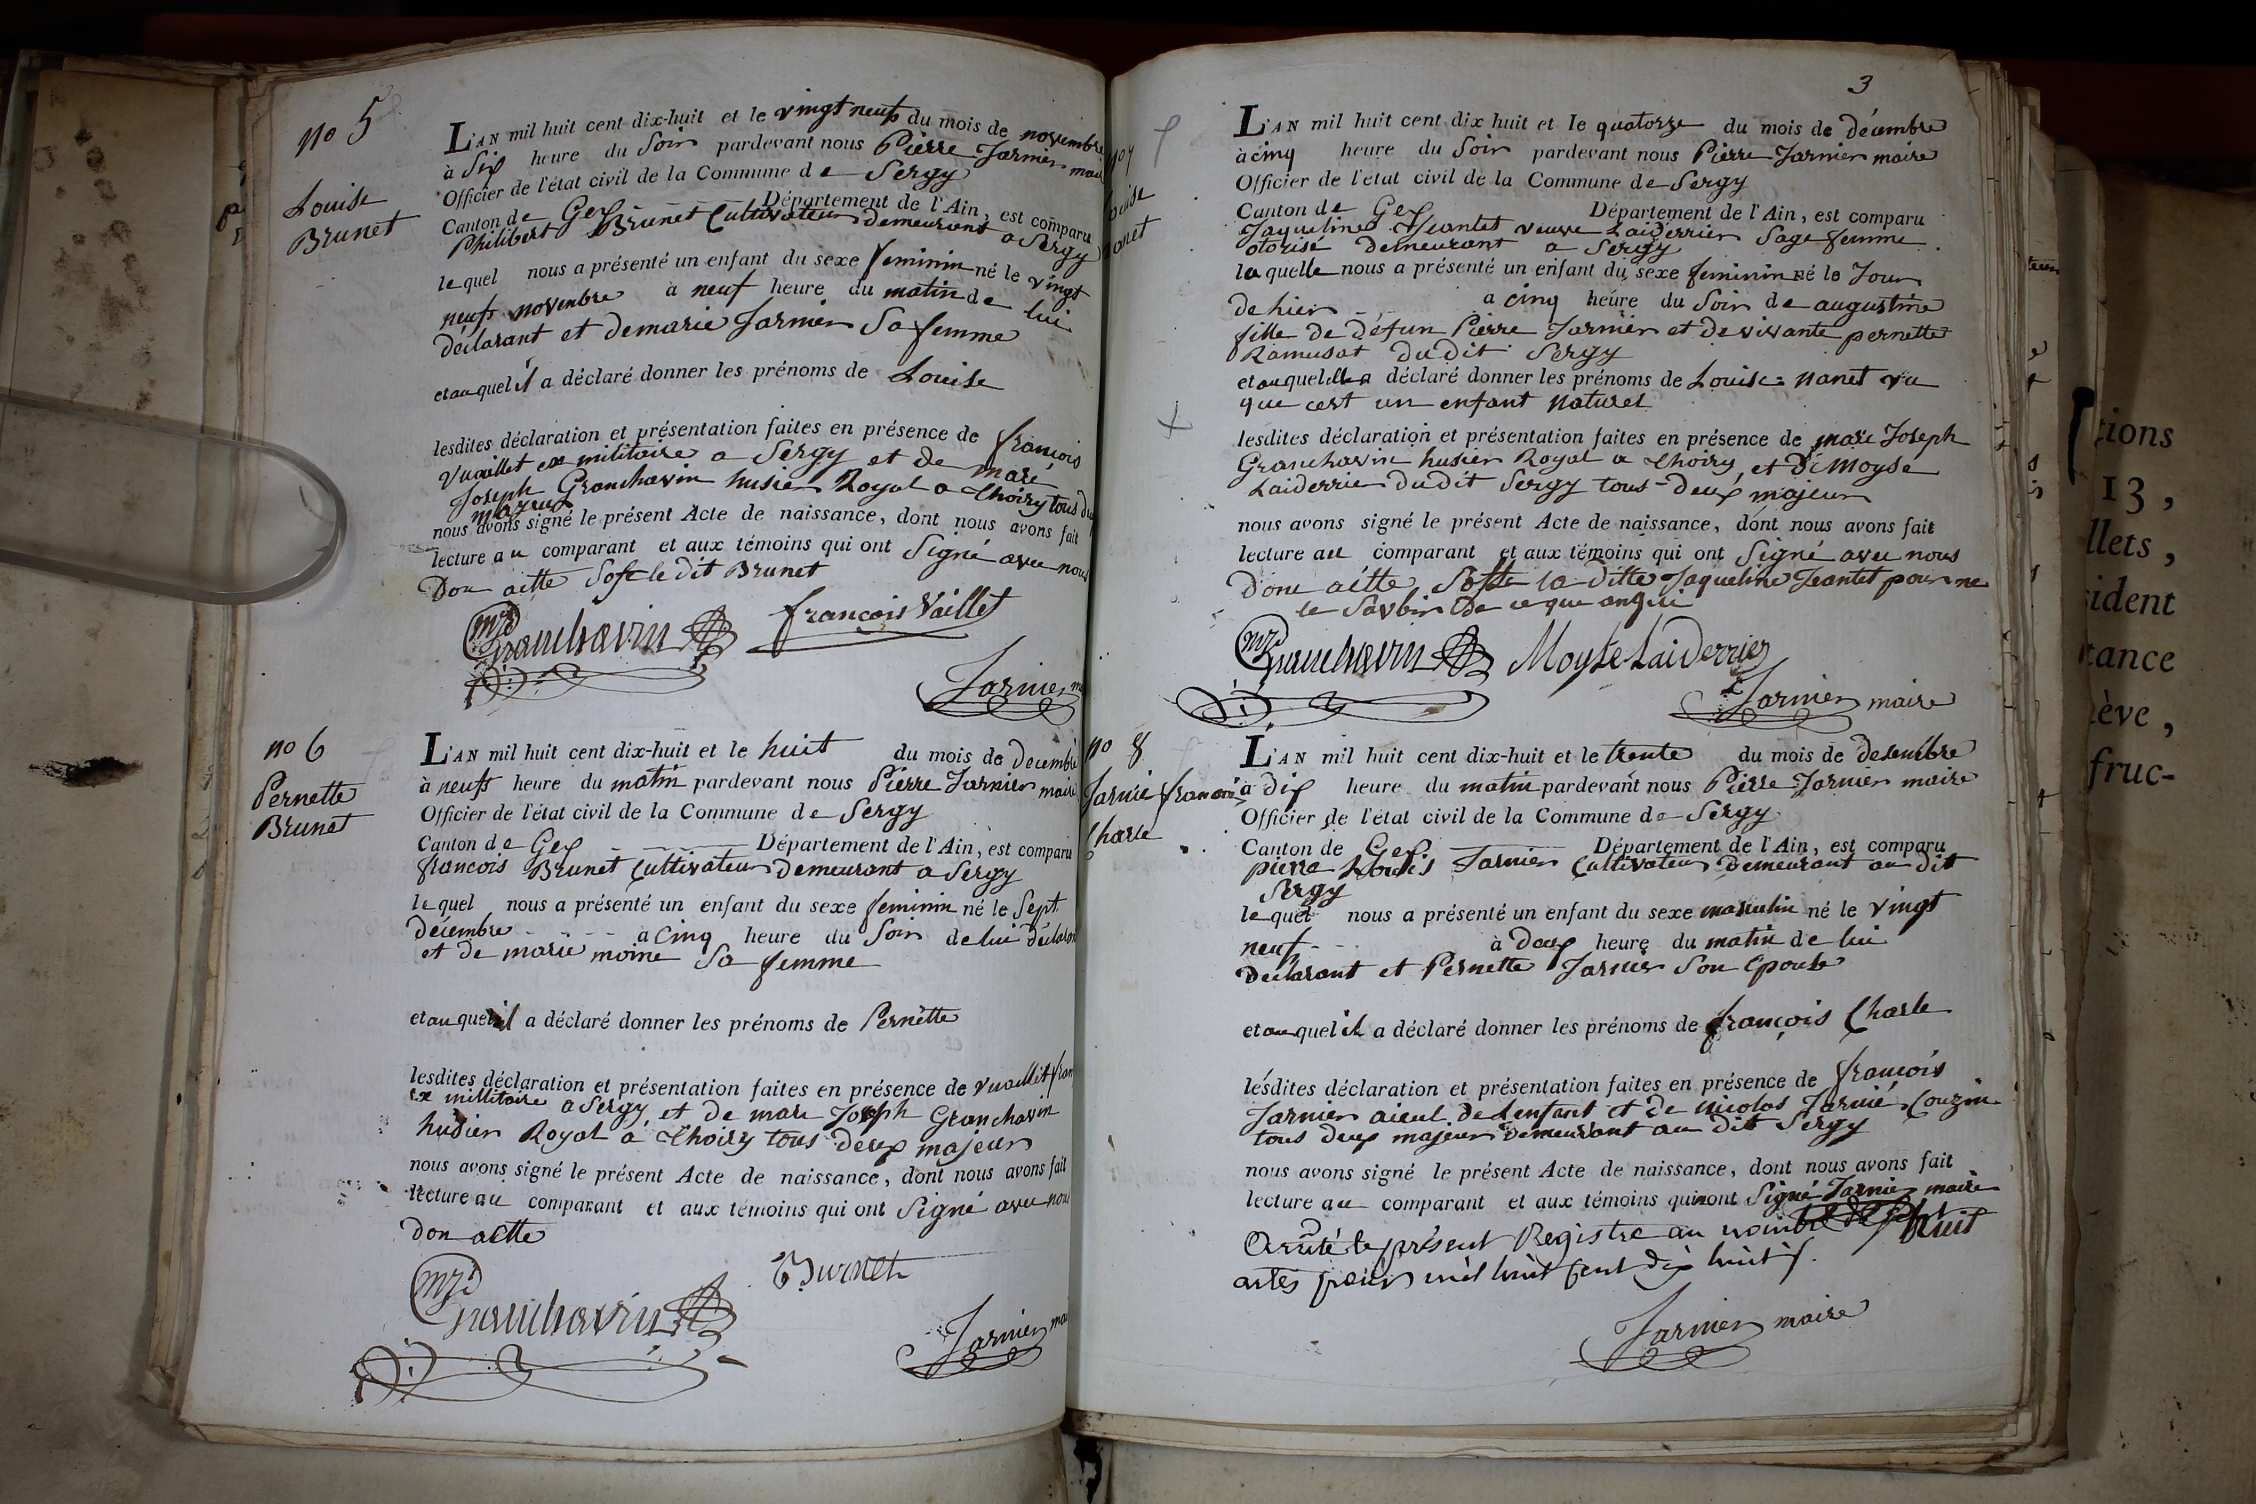 no 5
Louise
Brunet
L'AN mil huit cent dix-huit et le vingt neufs du mois de novembre
à Six heure du Soir pardevant nous Pierre Jarnier maire
Officier de l'état civil de la Commune de Sergy
Canton de Gex Département de l'Ain, est comparu
Philibert Brunet Cultivateur demeurant a Sergy
lequel nous a présenté un enfant du sexe feminin né le vingt
neufs novembre à neuf heure du matin de lui
déclarant et de marie Jarnier Sa femme
et auquel il a déclaré donner les prénoms de Louise
lesdites déclaration et présentation faites en présence de françois
Vuaillet ex militaire a Sergy et de marc
Joseph Granchavin husier Royal a Thoiry tous deux
majeur
nous avons signé le présent Acte de naissance, dont nous avons fait
lecture au comparant et aux témoins qui ont Signé avec nous
Don actte Sofe le dit Brunet
mJ Granchavin
françois Vaillet
Jarnier
no 6
Pernette
Brunet
L'AN mil huit cent dix-huit et le huit du mois de Decembre
à neufs heure du matin pardevant nous Pierre Jarnier maire
Officier de l'état civil de la Commune de Sergy
Canton de Gex Département de l'Ain, est comparu
francois Brunet Cultivateur demeurant a Sergy
lequel nous a présenté un enfant du sexe feminin né le Sept
décembre a Cinq heure du Soir de lui déclarant
et de marie moine Sa femme
et au quel il a déclaré donner les prénoms de Pernette
lesdites déclaration et présentation faites en présence de vuaillet fran
ex millitaire a Sergy et de marc Joseph Granchavin
husier Royal a Thoiry tous deux majeur
nous avons signé le présent Acte de naissance, dont nous avons fait
lecture au comparant et aux témoins qui ont Signé avec nous
don actte
mJ Granchavin
Burnet
Jarnier
3
no 7
Louise
nanet
L'AN mil huit cent dix huit et le quatorze du mois de décembre
à cinq heure du Soir pardevant nous Pierre Jarnier maire
Officier de l'état civil de la Commune de Sergy
Canton de Gex Département de l'Ain, est comparu
Jaqueline Jeantet veuve Laiderrier Sage femme
otorisé demeurant a Sergy
la quelle nous a présenté un enfant du sexe feminin né le Jour
de hier a cinq heure du Soir de augustine
fille de défun Pierre Jarnier et de vivante pernette
Ramusat du dit Sergy
et auquel elle a déclaré donner les prénoms de Louise = nanet vu
que cest un enfant naturel
lesdites déclaration et présentation faites en présence de marc Joseph
Granchavin husier Royal a Thoiry, et de Moyse
Laiderrier du dit Sergy tous-deux majeur
nous avons signé le présent Acte de naissance, dont nous avons fait
lecture au comparant et aux témoins qui ont Signé avec nous
Donc actte Softe la ditte Jaqueline Jeantet pour ne
le Savoir De ce que anqui
mJ Granchavin
Moyse Laiderrier
Jarnier maire
no 8
Jarnié francoi
Charle
L'AN mil huit cent dix-huit et le trente du mois de desembre
à dix heure du matin pardevant nous Pierre Jarnier maire
Officier de l'état civil de la Commune de Sergy
Canton de Gex Département de l'Ain, est comparu
pierre Louis Jarnier Cultivateur demeurant au dit
Sergy
lequel nous a présenté un enfant du sexe masculin né le vingt
neuf à deux heure du matin de lui
déclarant et Pernette Jarnier Son Epouse
et auquel il a déclaré donner les prénoms de françois Charle
lesdites déclaration et présentation faites en présence de francois
Jarnier aieul de Lenfant et de Nicolas Jarnié Couzin
tous deux majeur demeurant au dit Sergy
nous avons signé le présent Acte de naissance, dont nous avons fait
lecture au comparant et aux témoins qui nont Signé Jarnier maire
Arrêté le présent Registre au nombre de huit
actes pour mil huit cent dix huit
Jarnier maire
tions
13,
llets,
sident
tance
ève,
fruc-